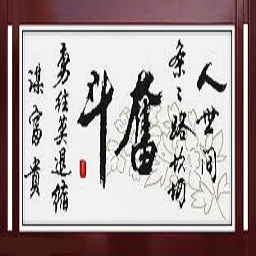 人世间
条之路坎坷
奋斗
勇往莫退缩
谋富贵